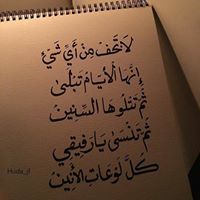 لا تخف من أي شيء
إنها الأيام تبلى
ثم تتلوها السنين
ثم تنسى يا رفيقي
كل لوعات الأنين
Huda_jl